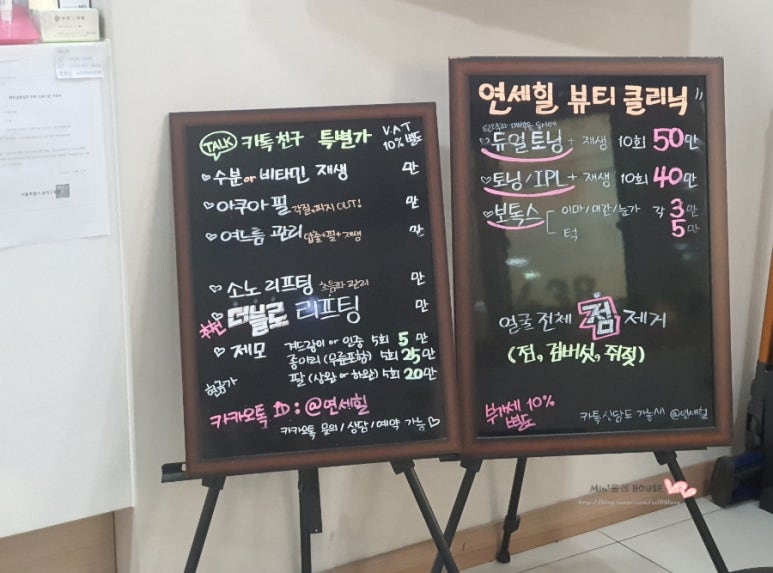 TALK 카톡친구 특별가 V.A.T 10% 별도
수분 or 비타민 재생 만
아쿠아 필 각질, 피지 OUT! 만
여드름 관리 압출+필+재생 만
소노 리프팅 초음파 관리 만
추천 더블로 리프팅 만
제모 겨드랑이 or 인중 5회 5만
종아리 (무릎포함) 5회 25만
현금가 팔 (상완 or 하완) 5회 20만
카카오톡 ID : @연세힐
카카오톡 문의 / 상담 / 예약 가능
연세힐 뷰티 클리닉
듀얼토닝 + 재생 10회 50만
토닝/IPL + 재생 10회 40만
보톡스 이마/미간/눈가 각 3만
턱 5만
얼굴 전체 점 제거
(점, 검버섯, 쥐젖)
부가세 10% 별도
카톡 상담도 가능^^ @연세힐
HOUSE